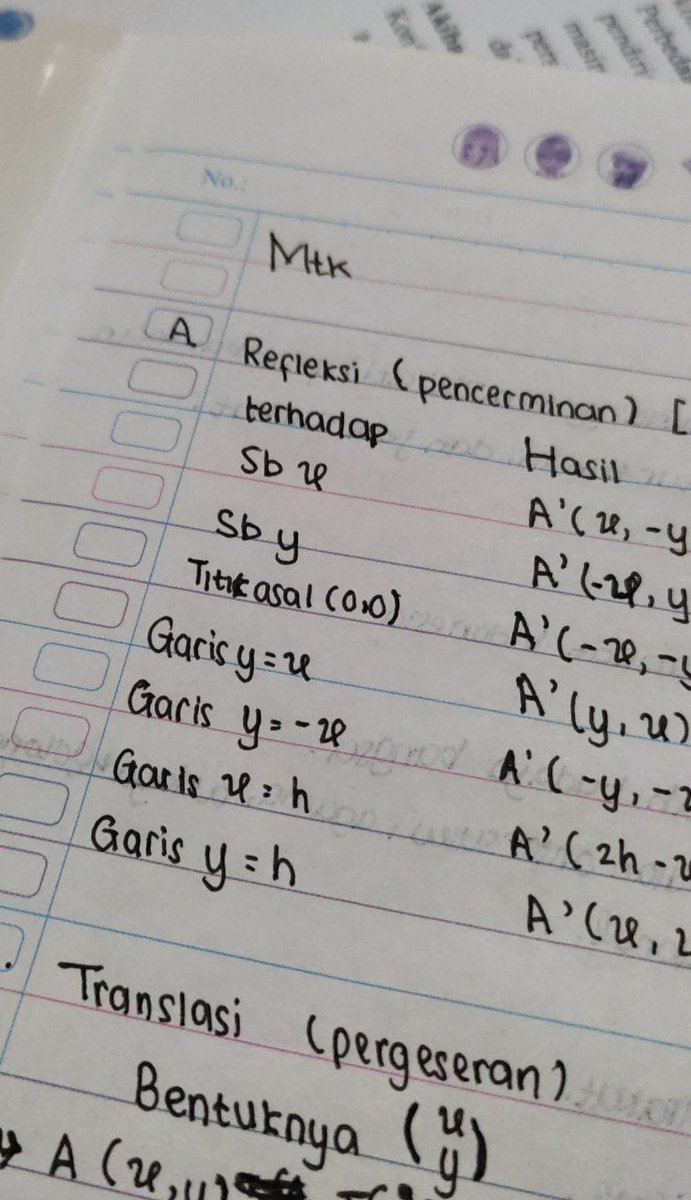 No.:
Mtk
A Refleksi (pencerminan) [
terhadap Hasil
Sb x A'(x, -y
Sb y A'(-x, y
Titik asal (0,0) A'(-x, -y
Garis y = x A'(y, x)
Garis y = -x A'(-y, -x
Garis x = h A'(2h - x
Garis y = h A'(x, 2
. Translasi (pergeseran)
Bentuknya (x y)
A (x, y)